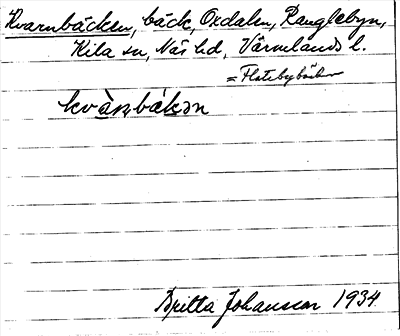 Kvarnbäcken, bäck, Oxdalen, Ranglebyn,
Kila sn, Näs hd, Värmlands l.
= Flatebybäcken
kvànbákən
Britta Johansson 1934